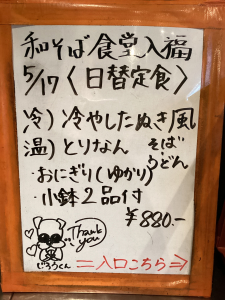 和そば食堂入福
5/17〈日替定食〉
冷）冷やしたぬき風
温）とりなん そば うどん
・おにぎり（ゆかり）
・小鉢2品付
¥880.-
Thank you
じろうくん
＝入口こちら⇒